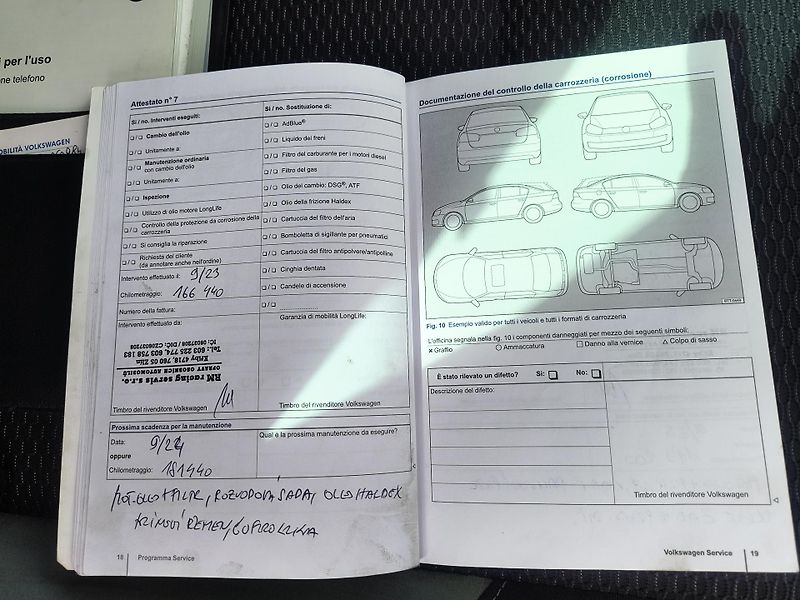 i per l'uso
ne telefono
OBILITÀ VOLKSWAGEN
Attestato n° 7
Si / no. Interventi eseguiti:
Cambio dell'olio
Unitamente a:
Manutenzione ordinaria
con cambio dell'olio
Unitamente a:
Ispezione
Utilizzo di olio motore LongLife
Controllo della protezione da corrosione della
carrozzeria
Si consiglia la riparazione
Richiesta del cliente
(da annotare anche nell'ordine)
Intervento effettuato il: 9/23
Chilometraggio: 166 440
Numero della fattura:
Intervento effettuato da:
RM racing servis s.r.o.
OPRAVY OSOBNÍCH AUTOMOBILŮ
Timbro del rivenditore Volkswagen
Si / no. Sostituzione di:
AdBlue®
Liquido dei freni
Filtro del carburante per i motori diesel
Filtro del gas
Olio del cambio: DSG®, ATF
Olio della frizione Haldex
Cartuccia del filtro dell'aria
Bomboletta di sigillante per pneumatici
Cartuccia del filtro antipolvere/antipolline
Cinghia dentata
Candele di accensione
Garanzia di mobilità LongLife:
Timbro del rivenditore Volkswagen
Prossima scadenza per la manutenzione
Data: 9/24
oppure
Chilometraggio: 181440
Qual è la prossima manutenzione da eseguire?
MOT.OLEJ+FILTR, ROZVODOVÁ SADA, OLEJ HALDEX
KLÍNOVÝ ŘEMEN,
18 Programma Service
Documentazione del controllo della carrozzeria (corrosione)
Fig. 10 Esempio valido per tutti i veicoli e tutti i formati di carrozzeria
L'officina segnala nella fig. 10 i componenti danneggiati per mezzo dei seguenti simboli:
× Graffio ○ Ammaccatura □ Danno alla vernice △ Colpo di sasso
È stato rilevato un difetto? Sì: No:
Descrizione del difetto:
Timbro del rivenditore Volkswagen
Volkswagen Service 19